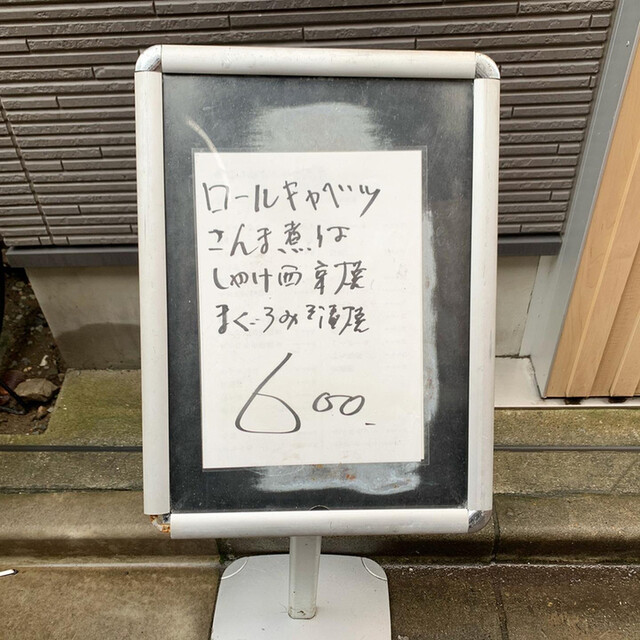 ロールキャベツ
さんま煮
しゃけ西京焼
まぐろみそ漬焼
600.